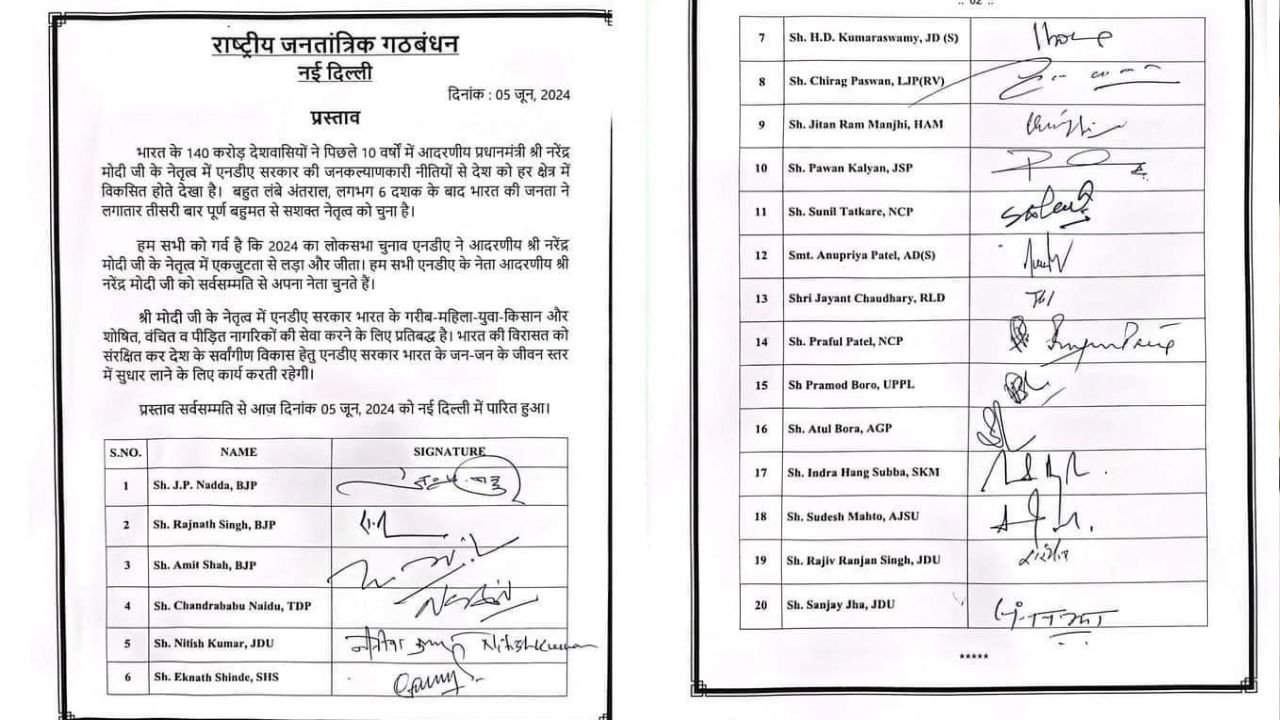 राष्ट्रीय जनतांत्रिक गठबंधन
नई दिल्ली
दिनांक : 05 जून, 2024
प्रस्ताव
भारत के 140 करोड़ देशवासियों ने पिछले 10 वर्षों में आदरणीय प्रधानमंत्री श्री नरेंद्र
मोदी जी के नेतृत्व में एनडीए सरकार की जनकल्याणकारी नीतियों से देश को हर क्षेत्र में
विकसित होते देखा है। बहुत लंबे अंतराल, लगभग 6 दशक के बाद भारत की जनता ने
लगातार तीसरी बार पूर्ण बहुमत से सशक्त नेतृत्व को चुना है।
हम सभी को गर्व है कि 2024 का लोकसभा चुनाव एनडीए ने आदरणीय श्री नरेंद्र
मोदी जी के नेतृत्व में एकजुटता से लड़ा और जीता। हम सभी एनडीए के नेता आदरणीय श्री
नरेंद्र मोदी जी को सर्वसम्मति से अपना नेता चुनते हैं।
श्री मोदी जी के नेतृत्व में एनडीए सरकार भारत के गरीब-महिला-युवा-किसान और
शोषित, वंचित व पीड़ित नागरिकों की सेवा करने के लिए प्रतिबद्ध है। भारत की विरासत को
संरक्षित कर देश के सर्वांगीण विकास हेतु एनडीए सरकार भारत के जन-जन के जीवन स्तर
में सुधार लाने के लिए कार्य करती रहेगी।
प्रस्ताव सर्वसम्मति से आज दिनांक 05 जून, 2024 को नई दिल्ली में पारित हुआ।
S.NO. NAME SIGNATURE
1 Sh. J.P. Nadda, BJP
2 Sh. Rajnath Singh, BJP
3 Sh. Amit Shah, BJP
4 Sh. Chandrababu Naidu, TDP
5 Sh. Nitish Kumar, JDU नीतीश कुमार Nitish Kumar
6 Sh. Eknath Shinde, SHS
.. 02 ..
7 Sh. H.D. Kumaraswamy, JD (S)
8 Sh. Chirag Paswan, LJP(RV)
9 Sh. Jitan Ram Manjhi, HAM
10 Sh. Pawan Kalyan, JSP
11 Sh. Sunil Tatkare, NCP
12 Smt. Anupriya Patel, AD(S)
13 Shri Jayant Chaudhary, RLD
14 Sh. Praful Patel, NCP
15 Sh Pramod Boro, UPPL
16 Sh. Atul Bora, AGP
17 Sh. Indra Hang Subba, SKM
18 Sh. Sudesh Mahto, AJSU
19 Sh. Rajiv Ranjan Singh, JDU
20 Sh. Sanjay Jha, JDU
*****